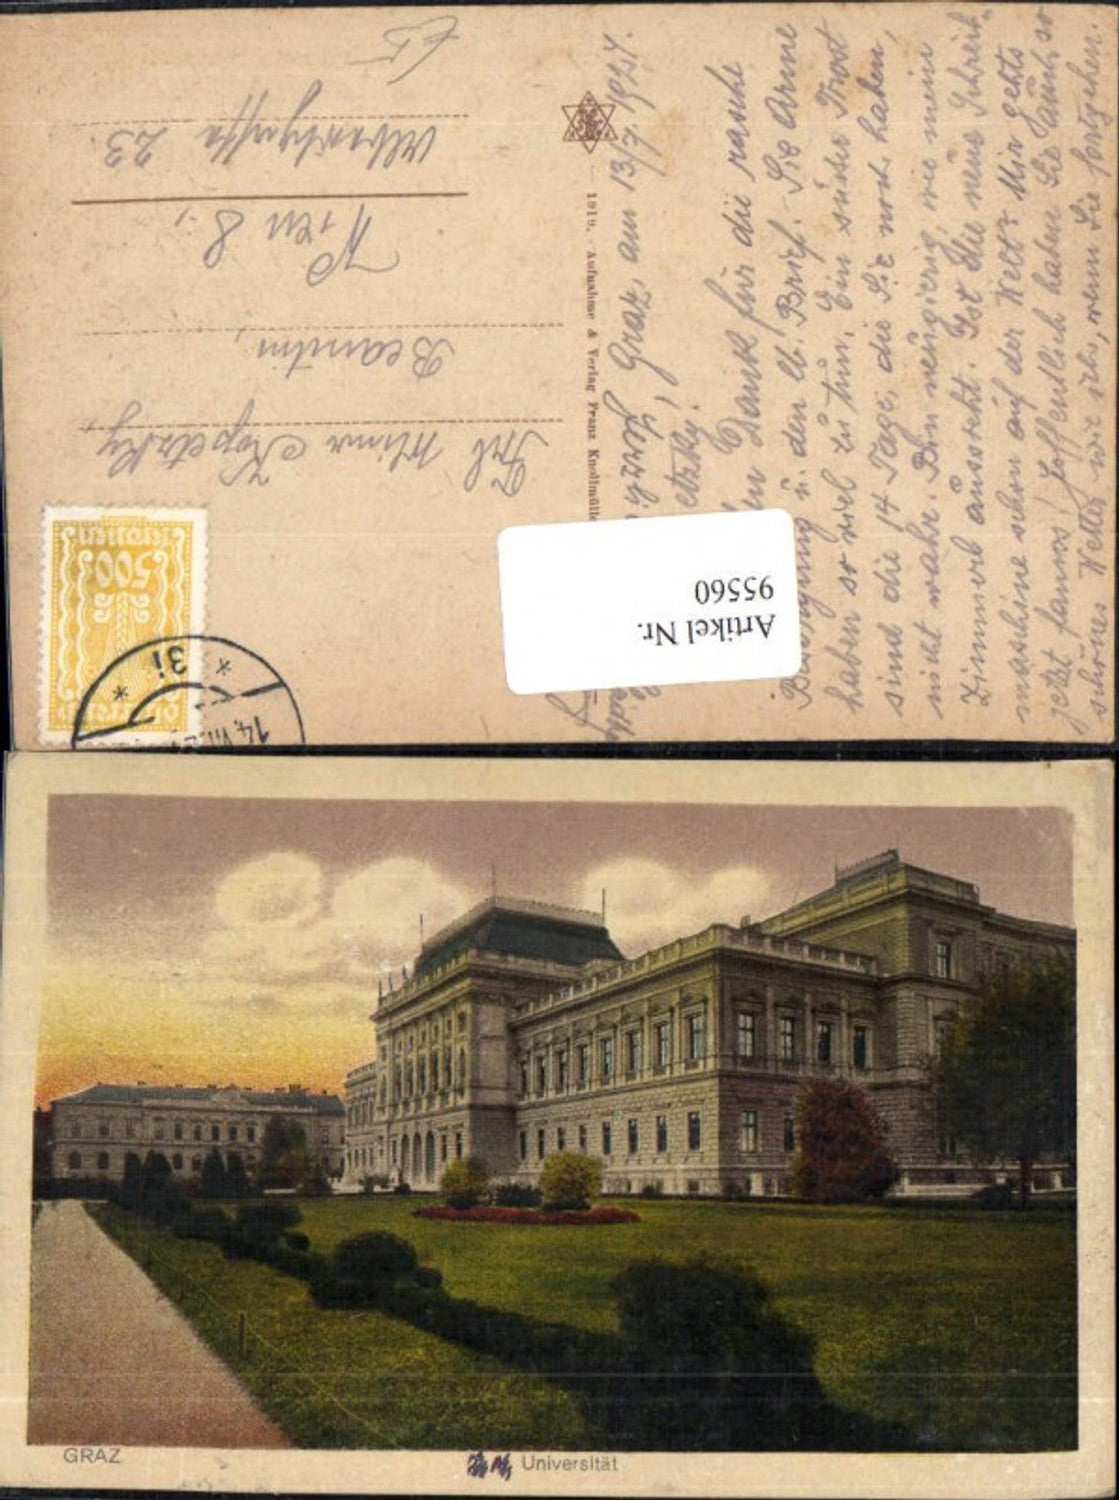 Graz, am 13/7. 1924.
Dank für die rasche
u. den lb. Brief. Sie Arme
haben so viel zu tun. Ein süsser Trost
sind die 14 Tage, die Sie noch haben,
nicht wahr. Bin neugierig, wie mein
Zimmerl aussieht. Ist die neue Schreib-
maschine schon auf der Welt? Mir gehts
jetzt famos! Hoffentlich haben Sie auch so
schönes Wetter wie ich, wenn Sie fortgehen.
1919. Aufnahme & Verlag Franz Knollmülle
Frl. Mina
Beamtin,
Wien 8.,
23.
500
Kronen
14.VII.2
* 3i *
Artikel Nr.
95560
GRAZ
Universität